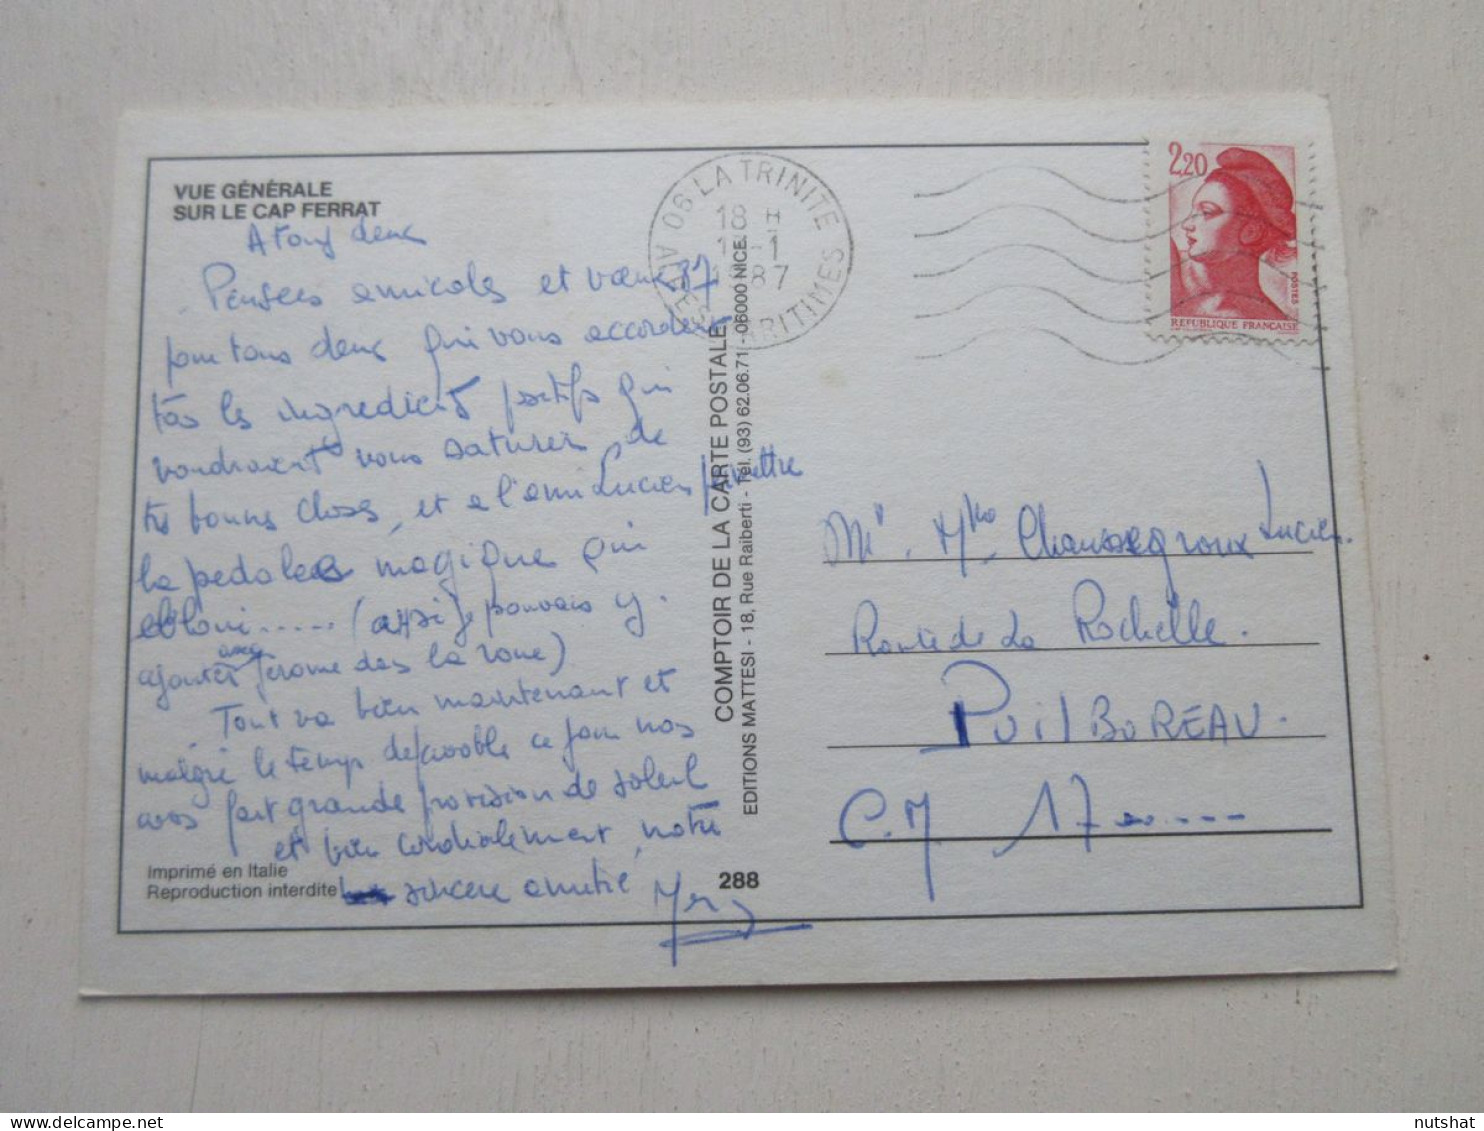 VUE GÉNÉRALE
SUR LE CAP FERRAT
A tous deux
Pensees amicales et vœux 87
pour tous deux qui vous accordent
tos les ingredients positifs qui
voudraient vous saturer de
trs bonnes choses, et a l'ami Lucien permettre
la pedalee magique qui
(assi je pouvais y
ajouter avec Jerome das la roue)
Tout va bien maintenant et
malgré le temps defavorable ce jour nos
avos fait grande provision de soleil
et bien cordialement, notre
sincere amitié
Imprimé en Italie
Reproduction interdite
288
COMPTOIR DE LA CARTE POSTALE
EDITIONS MATTESI - 18, Rue Raiberti - Tél. (93) 62.06.71 - 06000 NICE
06 LA TRINITE
18 H
-1
87
ALPES MARITIMES
2,20
POSTES
REPUBLIQUE FRANÇAISE
Mr. Mme. Chaussegroux Lucien.
Route de La Rochelle.
PUILBOREAU.
C.M 17000----
nutshat